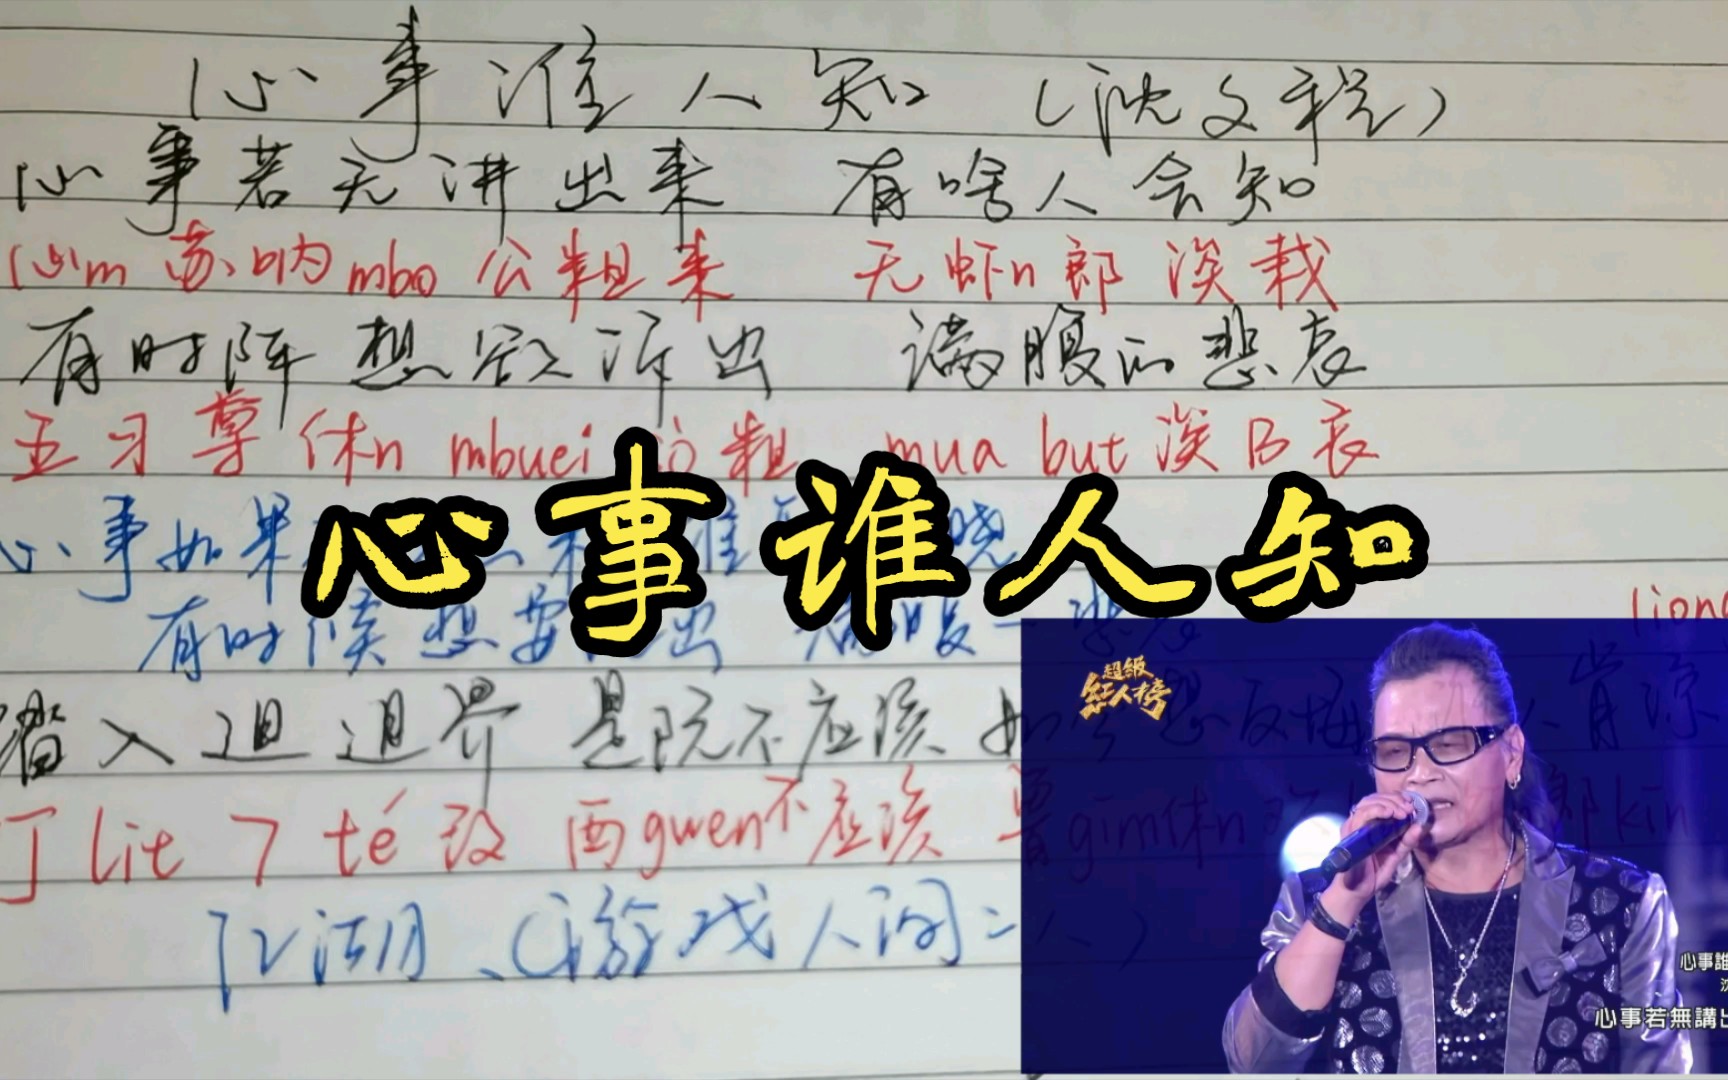 心事谁人知（沈文程）
心事若无讲出来 有啥人会知
心m苏呐mbo公粗来 无虾n郎淡栽
有时阵想欲诉出 满腹的悲哀
五习尊休n mbuei 粗 mua but淡B哀
心事如果 谁 晓
心事谁人知
有时候想要 出 满腹
liong
踏入 界 是阮不应该 如今想反悔 人肯凉
丁lit 7 té 改 西gwen不应该 普gim休n 郎kin
江湖、（游戏人间二人）
超級
紅人榜
心事誰
沈
心事若無講出